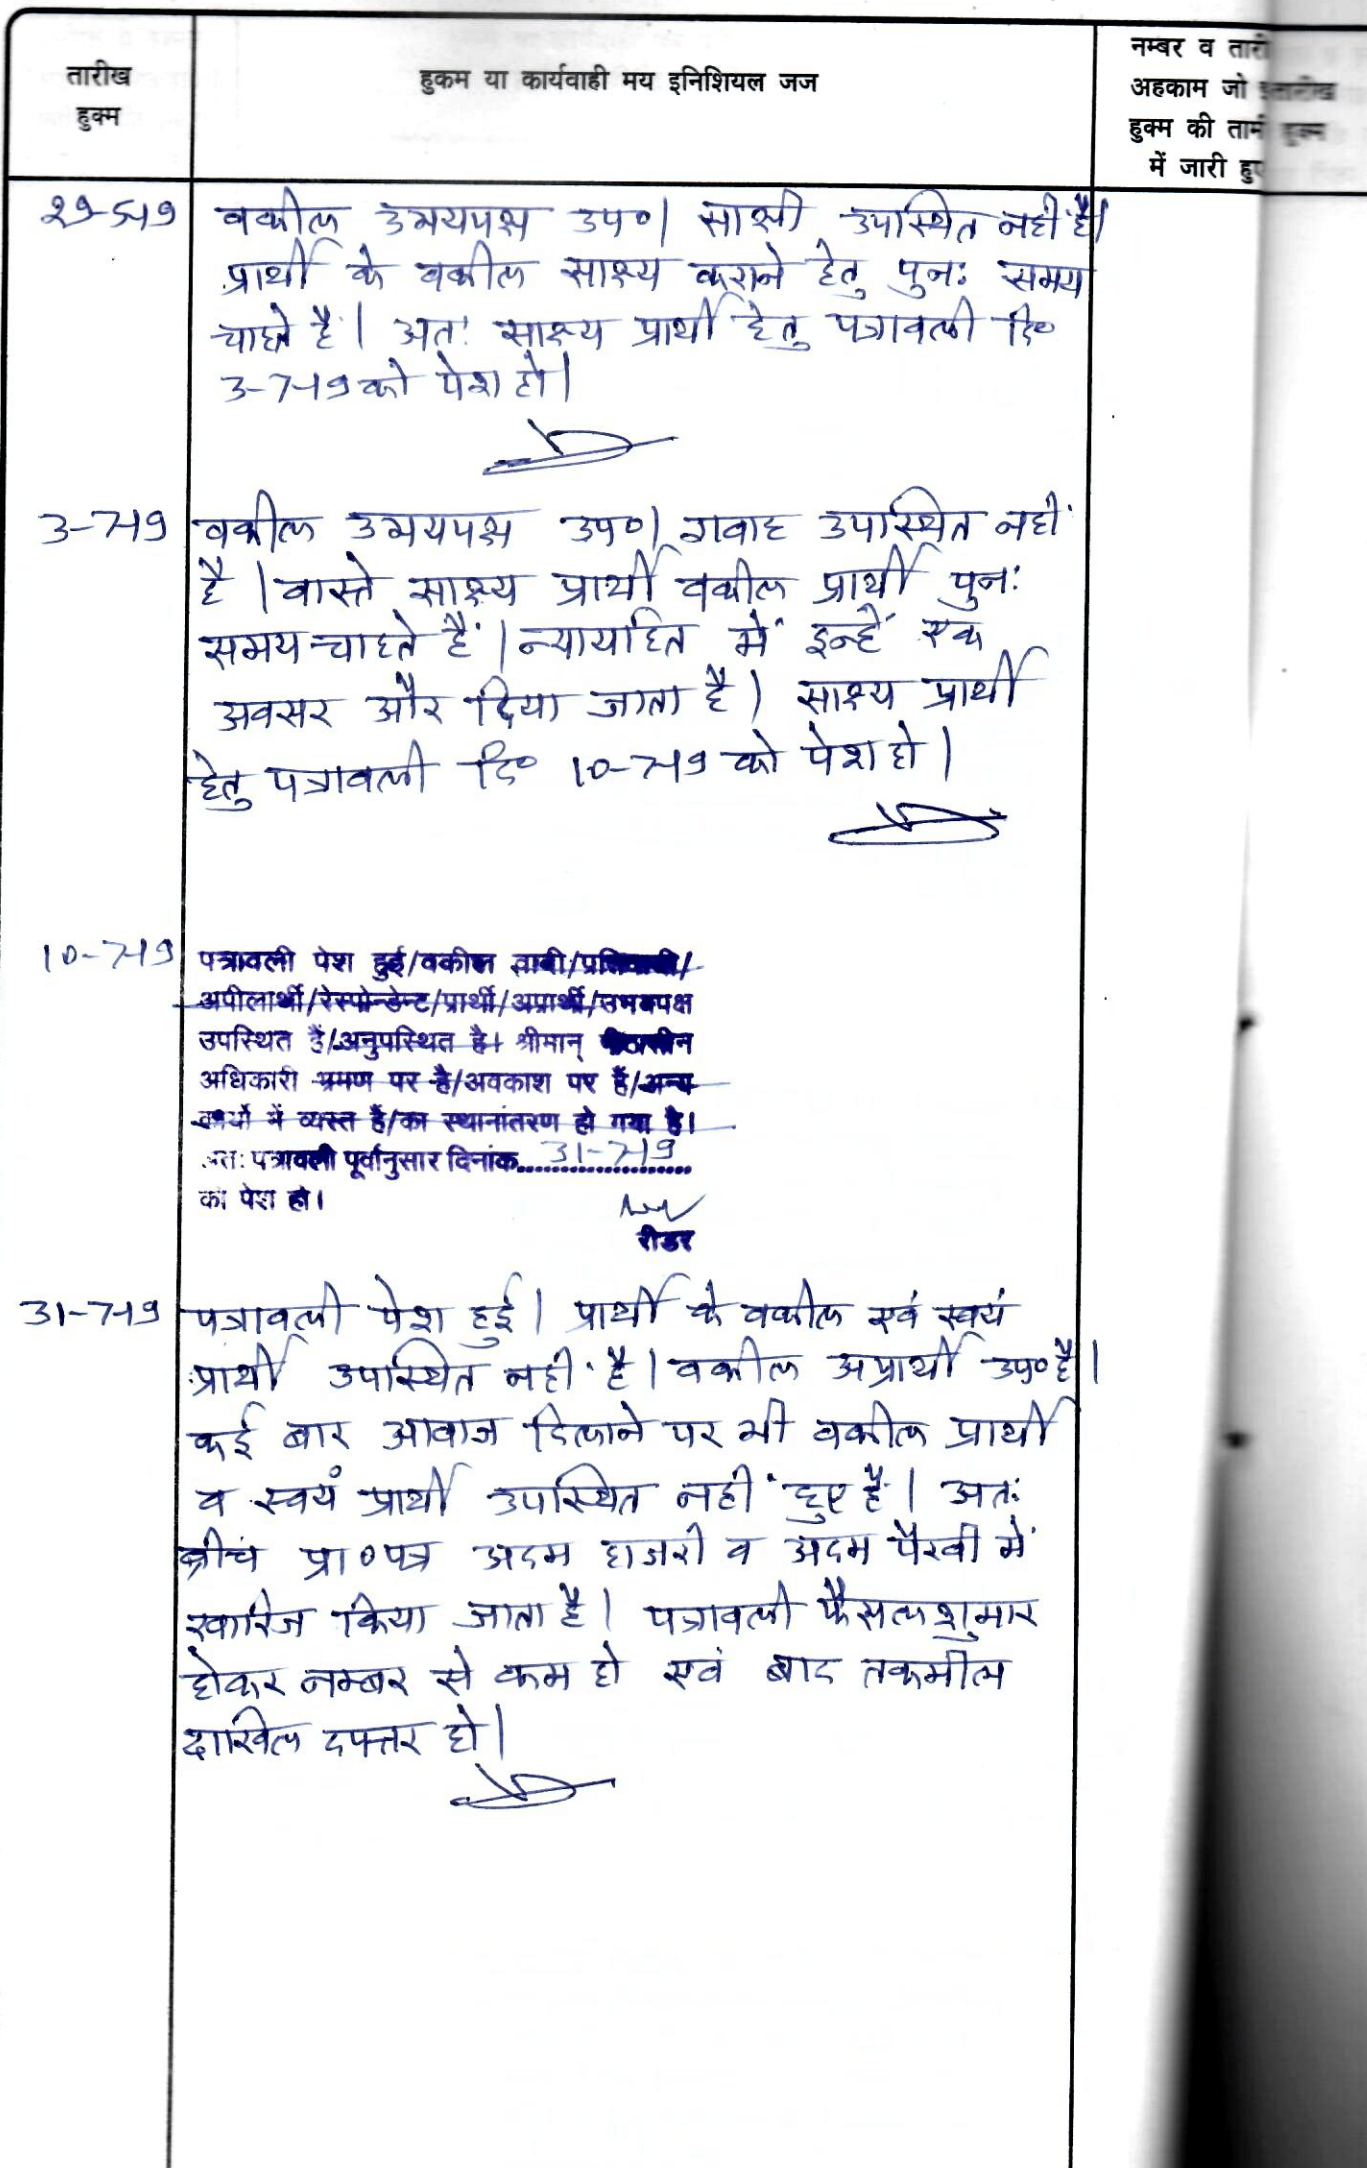 तारीख
हुक्म
हुकम या कार्यवाही मय इनिशियल जज
नम्बर व तारी
अहकाम जो
हुक्म की तामी
में जारी हुए
29-5-19
वकील उभयपक्ष उप०। साक्षी उपस्थित नहीं है।
प्रार्थी के वकील साक्ष्य कराने हेतु पुनः समय
चाहते है। अतः साक्ष्य प्रार्थी हेतु पत्रावली दि०
3-7-19 को पेश हो।
3-7-19
वकील उभयपक्ष उप०। गवाह उपस्थित नहीं
है। वास्ते साक्ष्य प्रार्थी वकील प्रार्थी पुनः
समय चाहते हैं। न्यायहित में इन्हें एक
अवसर और दिया जाता है। साक्ष्य प्रार्थी
हेतु पत्रावली दि० 10-7-19 को पेश हो।
10-7-19
पत्रावली पेश हुई/वकील वादी/प्रतिवादी/
अपीलार्थी/रेस्पोन्डेन्ट/प्रार्थी/अप्रार्थी/उभयपक्ष
उपस्थित हैं/अनुपस्थित है। श्रीमान् पीठासीन
अधिकारी भ्रमण पर है/अवकाश पर हैं/अन्य
कार्यो में व्यस्त हैं/का स्थानांतरण हो गया है।
अतः पत्रावली पूर्वानुसार दिनांक 31-7-19
को पेश हो।
रीडर
31-7-19
पत्रावली पेश हुई। प्रार्थी के वकील एवं स्वयं
प्रार्थी उपस्थित नहीं है। वकील अप्रार्थी उप० है।
कई बार आवाज दिलाने पर भी वकील प्रार्थी
व स्वयं प्रार्थी उपस्थित नहीं हुए है। अतः
प्रा०पत्र अदम हाजरी व अदम पैरवी में
खारिज किया जाता है। पत्रावली फैसल शुमार
होकर नम्बर से कम हो एवं बाद तकमील
दाखिल दफ्तर हो।